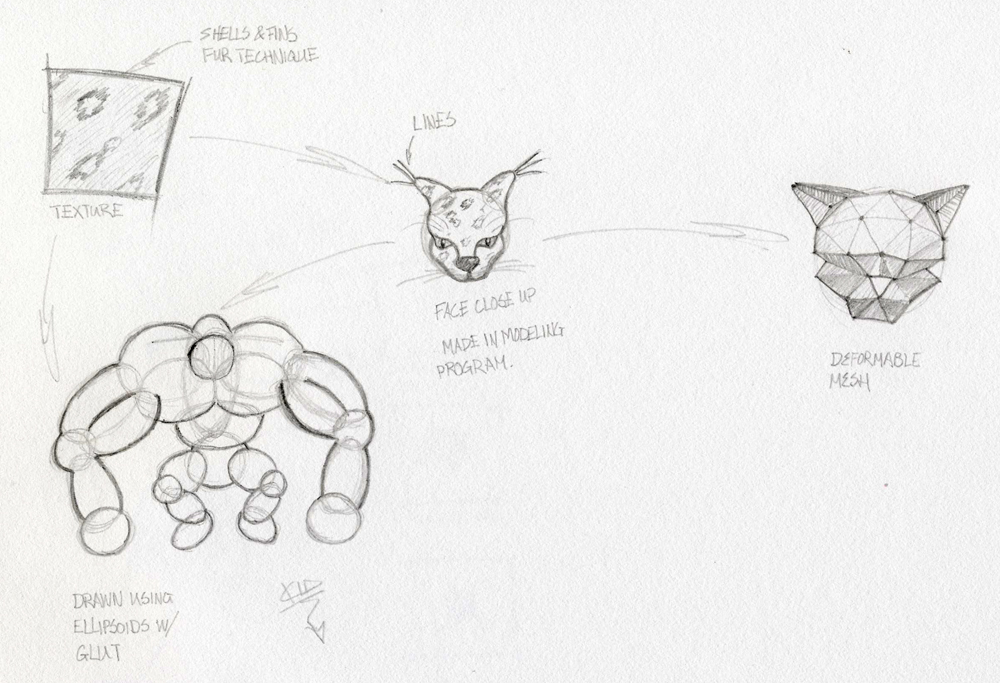 SHELLS & FINS
FUR TECHNIQUE
LINES
TEXTURE
FACE CLOSE UP
MADE IN MODELING
PROGRAM.
DEFORMABLE
MESH
DRAWN USING
ELLIPSOIDS W/
GLUT